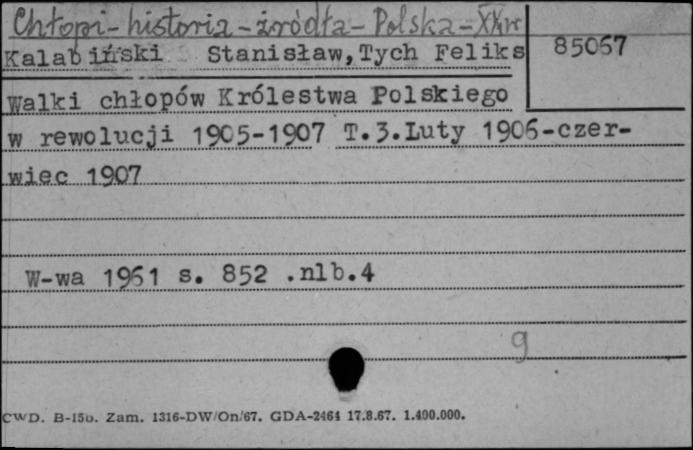 Chłopi - historia - źródła - Polska - XX w
Kalabiński Stanisław, Tych Feliks 85067
Walki chłopów Królestwa Polskiego
w rewolucji 1905-1907 T.3.Luty 1906-czer-
wiec 1907
W-wa 1961 s. 852 .nlb.4
9
CWD. B-15b. Zam. 1316-DW/On/67. GDA-2461 17.8.67. 1.400.000.